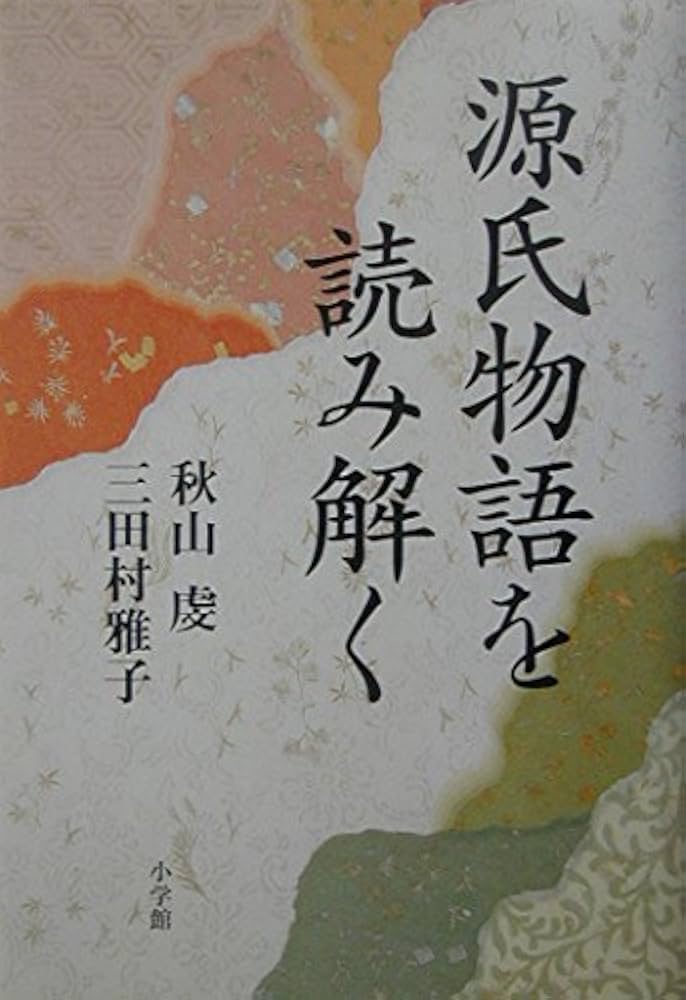 源氏物語を
読み解く
秋山 虔
三田村雅子
小学館